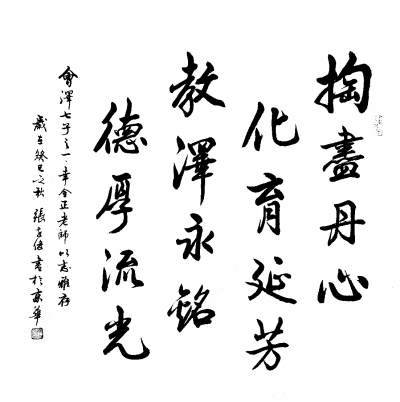 掏盡丹心
化育延芳
教澤永銘
德厚流光
會澤七子之一·幸合正老師以志雅存
歲在癸巳之秋 張
書於京華